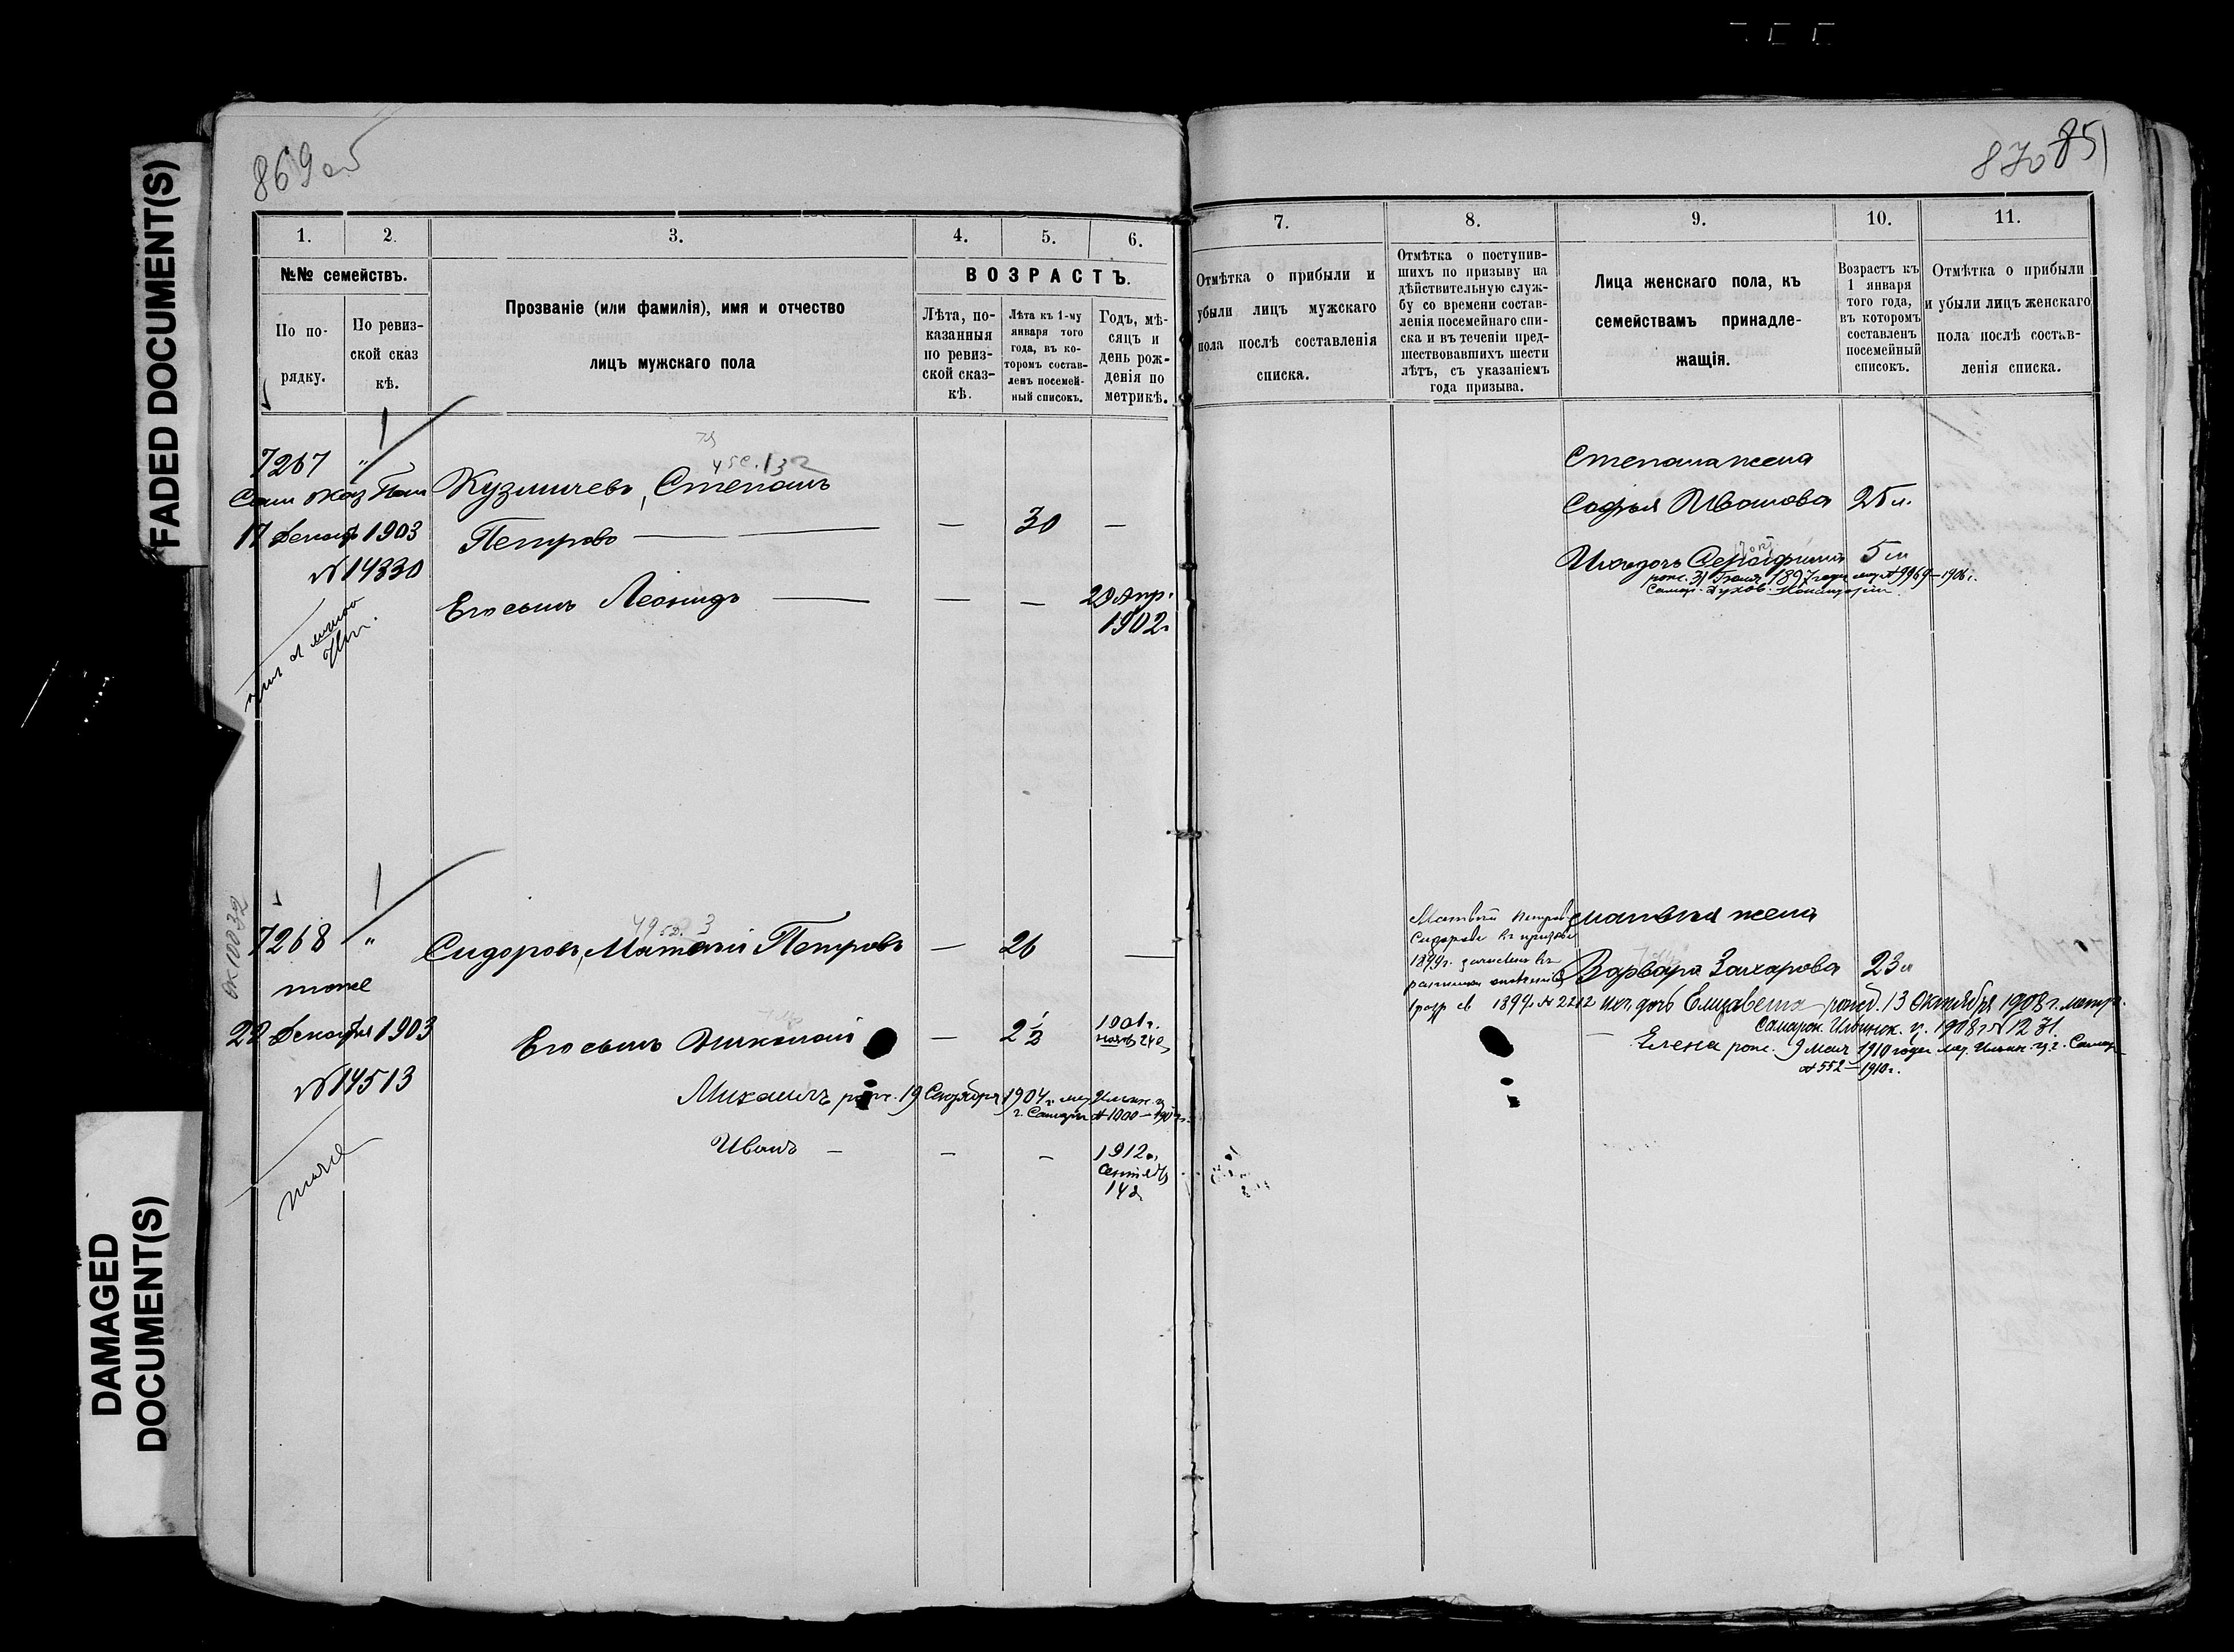 FADED DOCUMENT(S)
DAMAGED
DOCUMENT(S)
869об
1.
2.
3.
4.
5.
6.
№№ семействъ.
По по-
рядку.
По ревиз-
ской сказ
кѣ.
Прозваніе (или фамилія), имя и отчество
лицъ мужскаго пола
ВОЗРАСТЪ.
Лѣта, по-
казанныя
по ревиз-
ской сказ-
кѣ.
Лѣта къ 1-му
января того
года, въ ко-
торомъ состав-
ленъ посемей-
ный списокъ.
Годъ, мѣ-
сяцъ и
день рож-
денія по
метрикѣ.
7267 "
17 Декабр 1903
№ 14330
Кузмичевъ, Степанъ
Петровъ — — 30 —
Его сынъ Леонидъ — — — 29 Апр.
1902 г
ОК10032
7268 "
тоже
22 Декабря 1903
№ 14513
тоже
Сидоровъ, Матвѣй Петровъ — 26 —
Его сынъ Николай — 2½ 1901 г.
нояб 24 д
Михаилъ рож. 19 Сентября 1904 г.
г. Самары № 1000—190
Иванъ — — — 1912 г.
Сентяб
14 д
870 851
7.
8.
9.
10.
11.
Отмѣтка о прибыли и
убыли лицъ мужскаго
пола послѣ составленія
списка.
Отмѣтка о поступив-
шихъ по призыву на
дѣйствительную служ-
бу со времени состав-
ленія посемейнаго спи-
ска и въ теченіи пред-
шествовавшихъ шести
лѣтъ, съ указаніемъ
года призыва.
Лица женскаго пола, къ
семействамъ принадле-
жащія.
Возрастъ къ
1 января
того года,
въ которомъ
составленъ
посемейный
списокъ.
Отмѣтка о прибыли
и убыли лицъ женскаго
пола послѣ состав-
ленія списка.
Степана жена
Софья Иванова 25 л.
Ихъ дочь Серафима 5 л
рож. 31 Іюля 1897 года № 9969—1906 г.
Самар. Духов. Консисторіи
Матвѣй Петровъ
Сидоровъ къ призыву
1899 г. зачисленъ въ
ратники ополченія
1 разр св 1899 г. № 2212
Матвѣя жена
Варвара Захарова 23 л
Ихъ дочь Елизавета рожд. 13 Октября 1908 г. метр.
Самарск. Ильинск. ц. 1908 г. № 1231.
— Елена рож. 9 мая 1910 года Ильин. ц. г. Самар
№ 552—1910 г.